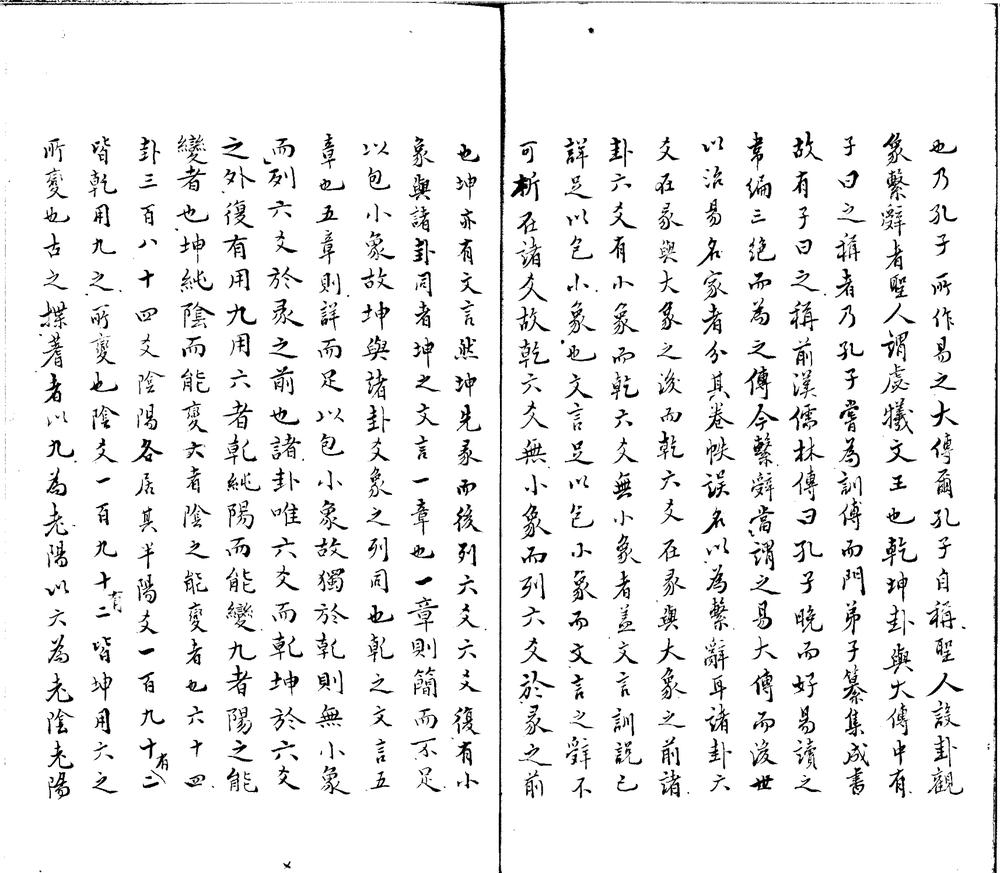 也乃孔子所作易之大傳爾孔子自稱聖人設卦觀
象繫辭者聖人謂虙犧文王也乾坤卦與大傳中有
子曰之稱者乃孔子嘗為訓傳而門弟子纂集成書
故有子曰之稱前漢儒林傳曰孔子晚而好易讀之
韋編三絶而為之傳今繫辭當謂之易大傳而後世
以治易名家者分其卷帙誤名以為繫辭耳諸卦六
爻在彖與大象之後而乾六爻在彖與大象之前諸
卦六爻有小象而乾六爻無小象者盖文言訓説已
詳足以包小象也文言足以包小象而文言之辭不
可析在諸爻故乾六爻無小象而列六爻於彖之前
也坤亦有文言然坤先彖而後列六爻六爻復有小
象與諸卦同者坤之文言一章也一章則簡而不足
以包小象故坤與諸卦爻象之列同也乾之文言五
章也五章則詳而足以包小象故獨於乾則無小象
而列六爻於彖之前也諸卦唯六爻而乾坤於六爻
之外復有用九用六者乾純陽而能變九者陽之能
變者也坤純陰而能變六者陰之能變者也六十四
卦三百八十四爻陰陽各居其半陽爻一百九十有二
皆乾用九之所變也陰爻一百九十有二皆坤用六之
所變也古之揲蓍者以九為老陽以六為老陰老陽